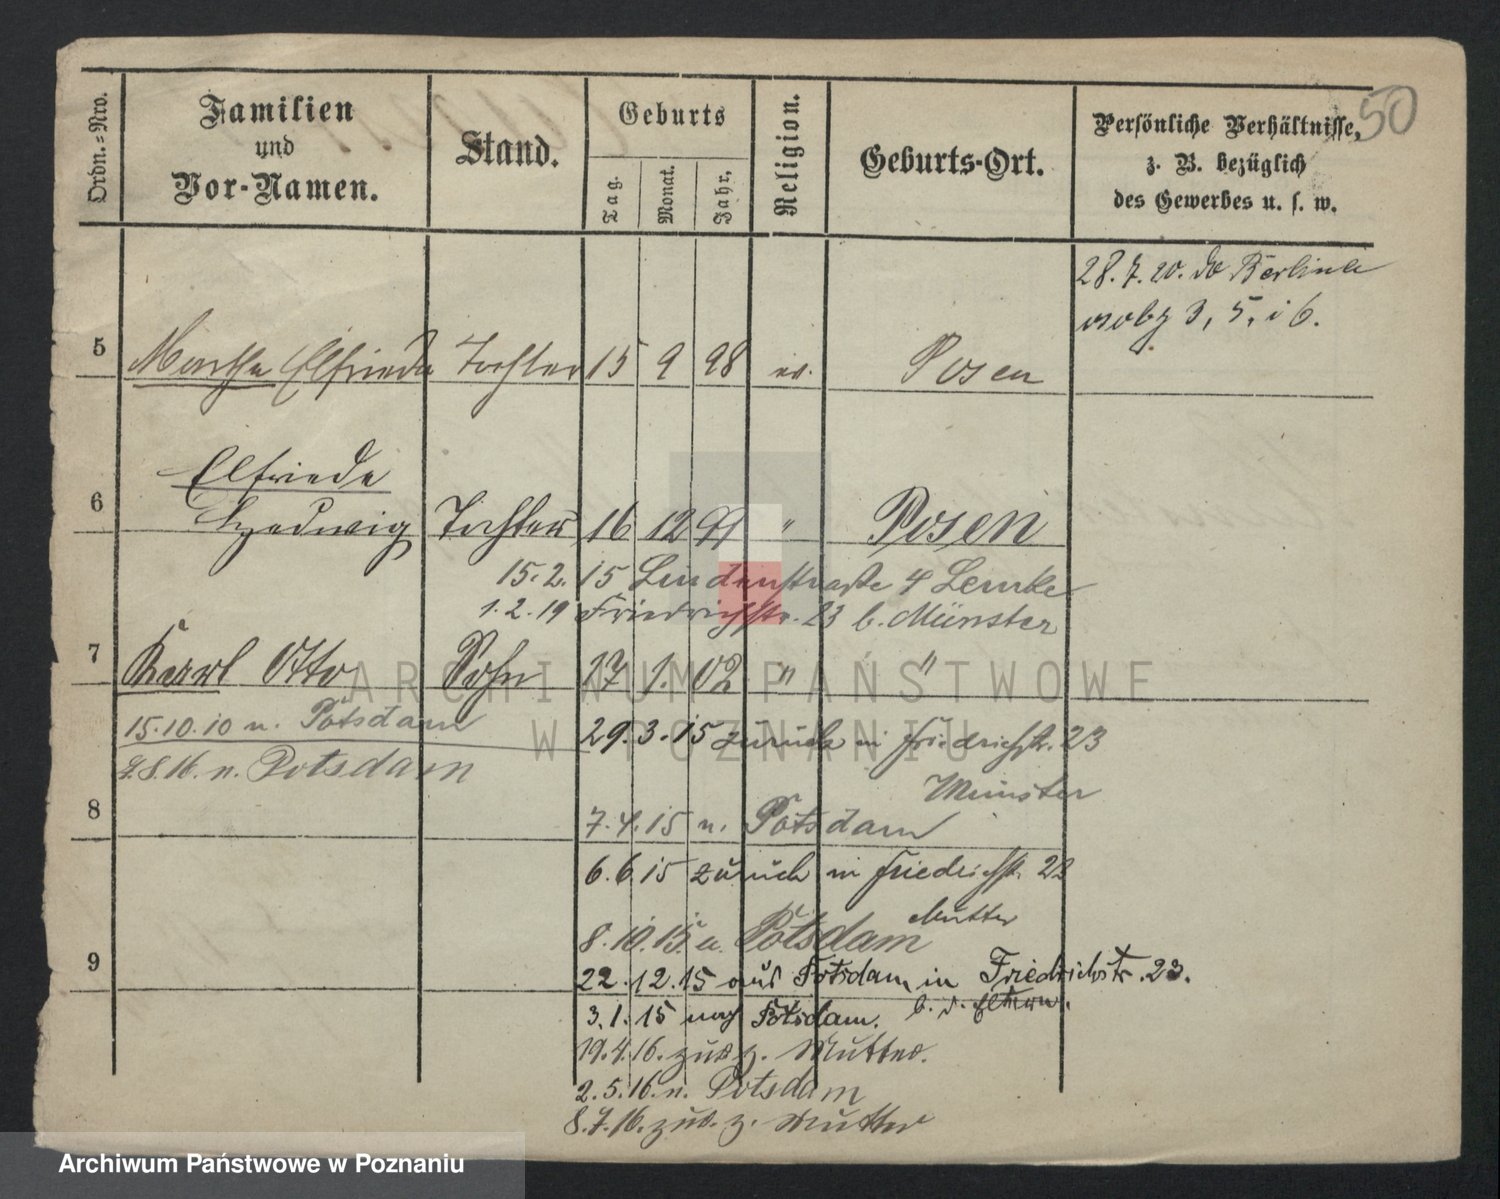 50
Ordn.=Nro.
Familien
und
Vor-Namen.
Stand.
Geburts
Tag.
Monat.
Jahr.
Religion.
Geburts-Ort.
Persönliche Verhältnisse,
z. B. bezüglich
des Gewerbes u. s. w.
28.7.20. do Berlina
osoby 3, 5, i 6.
5 Martha Elfriede Tochter 15 9 98 ev. Posen
Elfriede
6 Hedwig Tochter 16 12 99 " Posen
15.2.15 Lindenstraße 4 Lemke
1.2.19 Friedrichstr. 23 b. Münster
7 Karl Otto Sohn 17 1. 02 " "
15.10.10 n. Potsdam
29.3.15 zurück in Friedrichstr. 23
Münster
8.16. n. Potsdam
8
7.4.15 n. Potsdam
6.6.15 zurück in Friedrichstr. 22
Mutter
8.10.15 n. Potsdam
9
22.12.15 aus Potsdam in Friedrichstr. 23.
b. d. Eltern.
3.1.15 nach Potsdam.
19.4.16. zur. z. Mutter.
2.5.16. n. Potsdam
8.7.16. zur. z. Mutter
ARCHIWUM PAŃSTWOWE
W POZNANIU
Archiwum Państwowe w Poznaniu